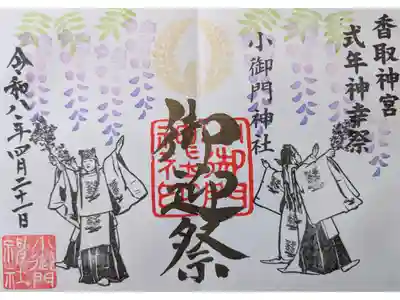 香取神宮
式年神幸祭
小御門神社
御迎祭
小御門
神社印
令和八年四月二十一日
小御門
神社